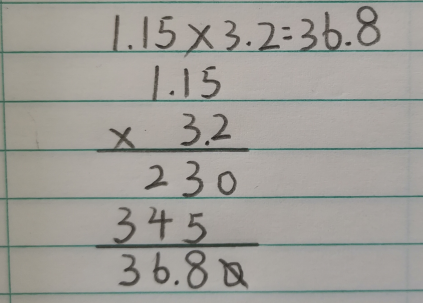 1.15×3.2=36.8
1.15
× 3.2
230
345
36.80